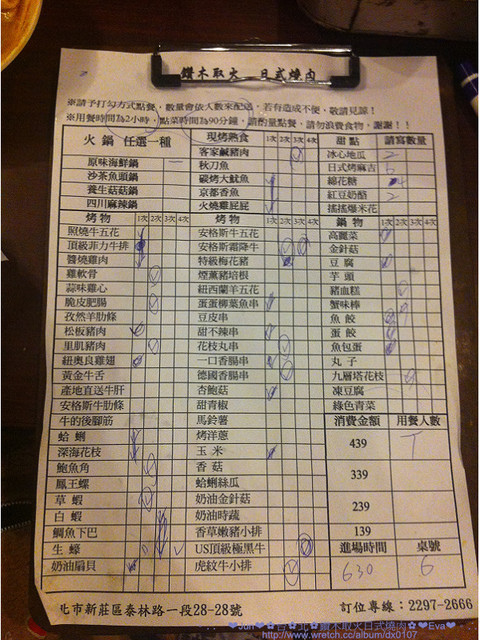 鑽木取火 日式燒肉
※請予打勾方式點餐，數量會依人數來配送，若有造成不便，敬請見諒！
※用餐時間為2小時，點菜時間為90分鐘，請酌量點餐，請勿浪費食物，謝謝！！
火 鍋 任選一種 現烤熟食 1次 2次 3次 4次 甜 點 請寫數量
客家鹹豬肉 冰心地瓜 2
原味海鮮鍋 秋刀魚 日式烤麻吉
沙茶魚頭鍋 碳烤大魷魚 綿花糖 4
養生菇菇鍋 京都香魚 紅豆奶酪 2
四川麻辣鍋 火燒雞屁屁 搖搖爆米花
烤 物 1次 2次 3次 4次 烤 物 1次 2次 3次 4次 鍋 物 1次 2次 3次 4次
照燒牛五花 安格斯牛五花 高麗菜
頂級菲力牛排 安格斯霜降牛 金針菇
醬燒雞肉 特級梅花豬 豆 腐
雞軟骨 煙薰豬培根 芋 頭
蒜味雞心 紐西蘭羊五花 豬血糕
脆皮肥腸 蛋蛋柳葉魚串 蟹味棒
孜然羊肋條 豆皮串 魚 餃
松板豬肉 甜不辣串 蛋 餃
里肌豬肉 花枝丸串 魚包蛋
紐奧良雞翅 一口香腸串 丸 子
黃金牛舌 德國香腸串 九層塔花枝
產地直送牛肝 杏鮑菇 凍豆腐
安格斯牛肋條 甜青椒 綠色青菜
牛的後腳筋 馬鈴薯 消費金額 用餐人數
蛤 蜊 烤洋蔥 439
深海花枝 玉 米
鮑魚角 香 菇 339
鳳王螺 蛤蜊絲瓜
草 蝦 奶油金針菇 239
白 蝦 奶油時蔬
鯛魚下巴 香草嫩豬小排 139
生 蠔 US頂級極黑牛 進場時間 桌號
奶油扇貝 虎紋牛小排 630 6
北市新莊區泰林路一段28-28號 訂位專線：2297-2666
❤Jun❤✿台✿北✿鑽木取火日式燒肉✿❤Eva❤
http://www.wretch.cc/album/dxo107